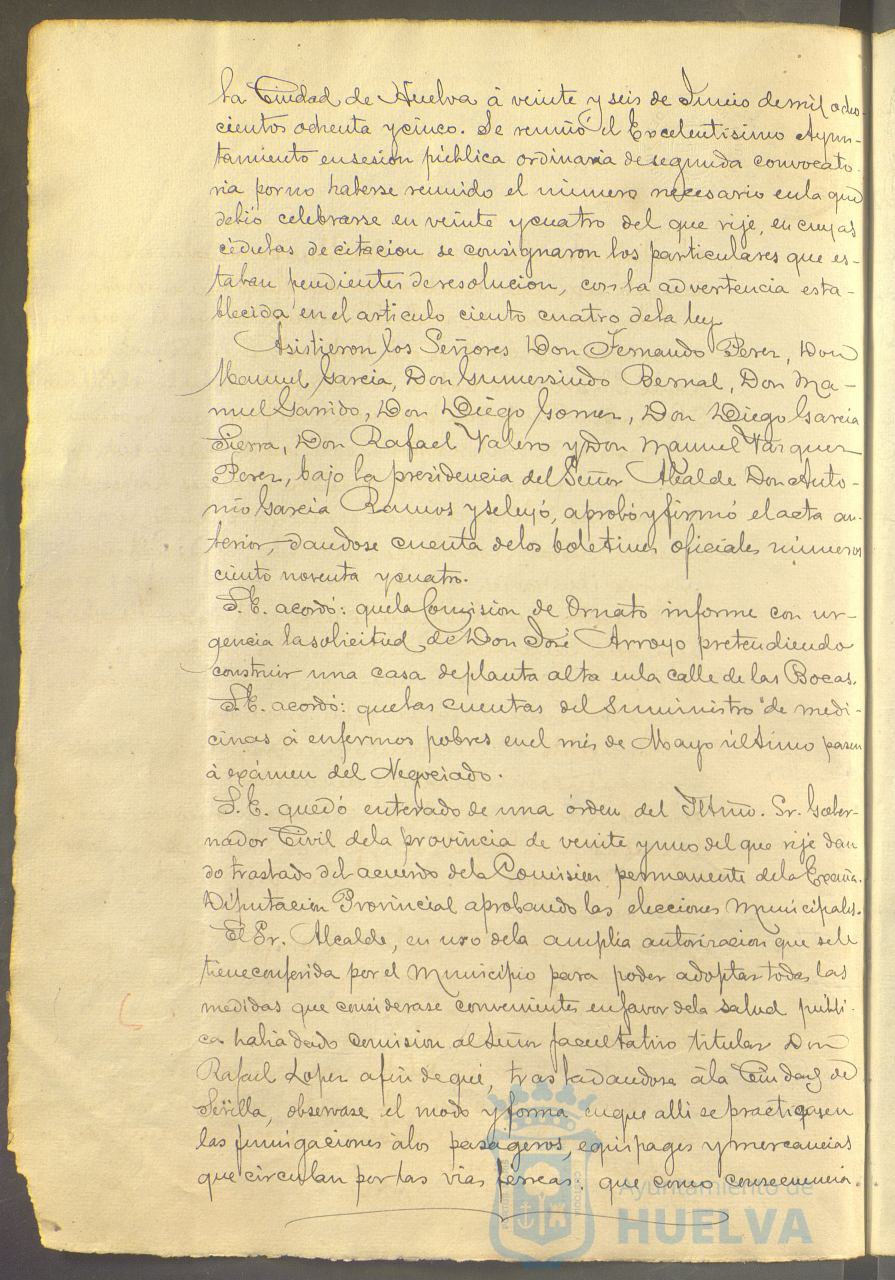 la Ciudad de Huelva á veinte y seis de Junio de mil ocho-
cientos ochenta y cinco. Se reunió el Excelentísimo Ayun-
tamiento en sesion pública ordinaria de segunda convocato-
ria por no haberse reunido el número necesario en la que
debió celebrarse en veinte y cuatro del que rije, en cuyas
cédulas de citacion se consignaron los particulares que es-
taban pendientes de resolucion, con la advertencia esta-
blecida en el articulo ciento cuatro de la ley
Asistieron los Señores Don Fernando Perez, Don
Manuel Garcia, Don Gumersindo Bernal, Don Ma-
nuel Garrido, Don Diego Gomez, Don Diego Garcia
Sierra, Don Rafael Valero y Don Manuel Vazquez
Perez, bajo la presidencia del Señor Alcalde Don Anto-
nio Garcia Ramos y se leyó, aprobó y firmó el acta an-
terior, dandose cuenta de los boletines oficiales números
ciento noventa y cuatro.
S.E. acordó: que la Comision de Ornato informe con ur-
gencia la solicitud de Don José Arroyo pretendiendo
construir una casa de planta alta en la calle de las Bocas.
S.E. acordó: que las cuentas del Suministro de medi-
cinas á enfermos pobres en el més de Mayo último pasen
á exámen del Negociado.
S.E. quedó enterado de una órden del Iltmo. Sr. Gober-
nador Civil de la provincia de veinte y uno del que rije dan
do traslado del acuerdo de la Comision permanente de la Excma.
Diputacion Provincial aprobando las elecciones Municipales.
El Sr. Alcalde, en uso de la amplia autorizacion que se le
tiene conferida por el Municipio para poder adoptar todas las
medidas que considerase convenientes en favor de la salud públi-
ca habia dado comision al Señor facultativo titular Don
Rafael Lopez a fin de que, trasladandose á la Ciudad de
Sevilla, observase el modo y forma en que alli se practiquen
las fumigaciones á los pasageros, equipages y mercancias
que circulan por las vias ferreas: que como consecuencia
Ayuntamiento de
HUELVA